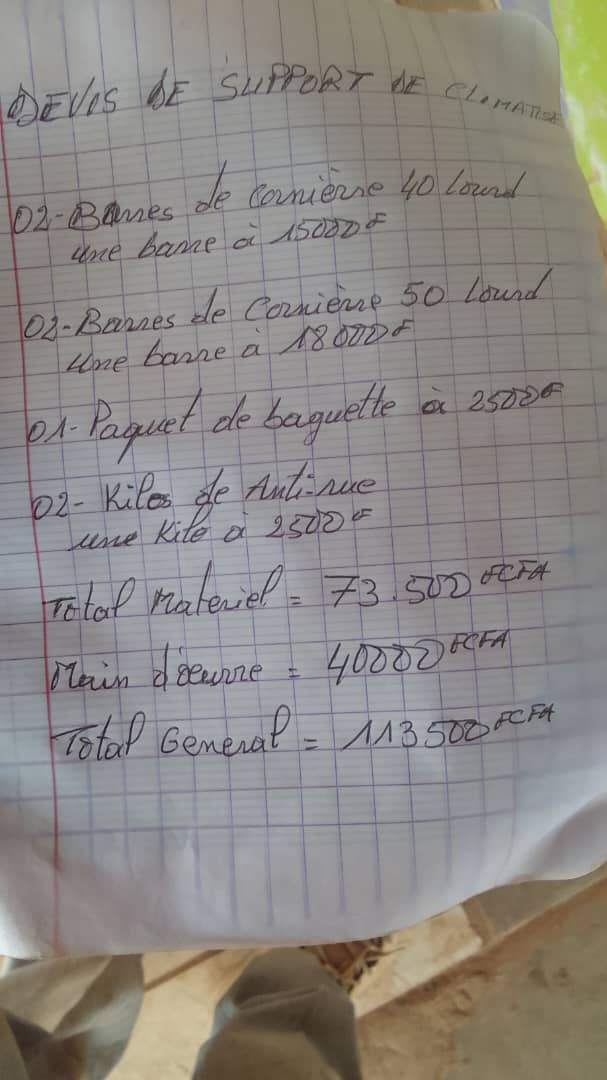 DEVIS DE SUPPORT DE CLIMATISE
02- Barres de Cornière 40 lourd
une barre à 15000F
02- Barres de Cornière 50 lourd
une barre à 18000F
01- Paquet de baguette à 2500F
02- Kilos de Anti-rue
une Kilo à 2500F
Total Materiel = 73.500 FCFA
Main d'œuvre = 40000 FCFA
Total General = 113500 FCFA